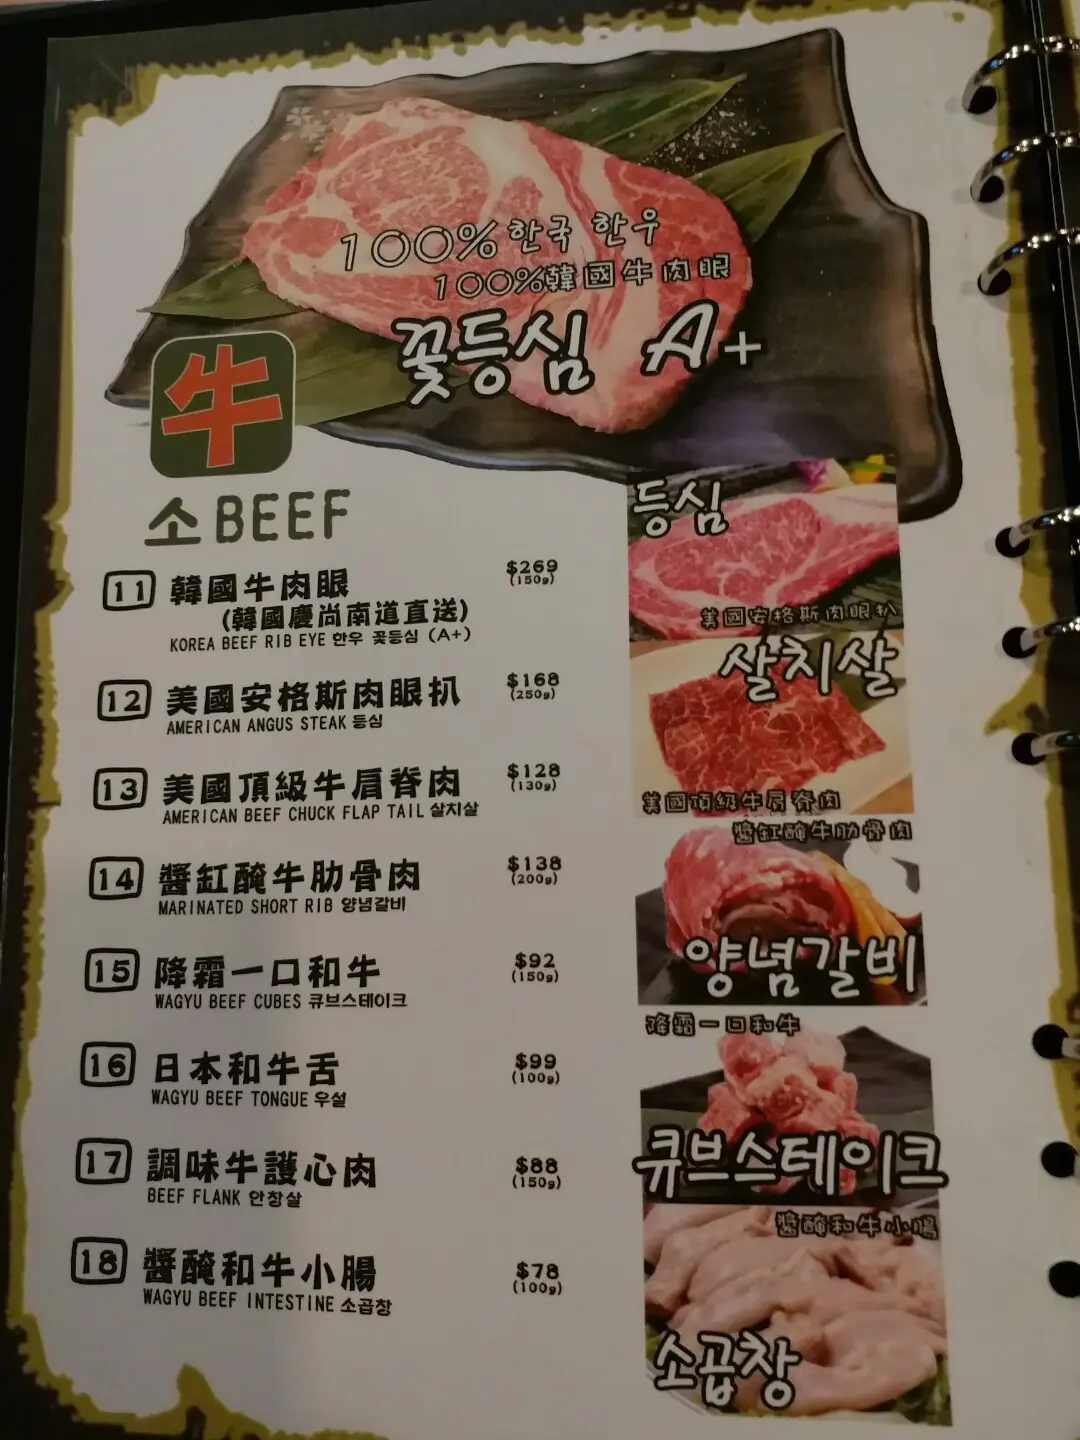 100% 한국 한우
100%韓國牛肉眼
꽃등심 A+
牛
소 BEEF
11 韓國牛肉眼 $269
(韓國慶尚南道直送) (150g)
KOREA BEEF RIB EYE 한우 꽃등심 (A+)
12 美國安格斯肉眼扒 $168
AMERICAN ANGUS STEAK 등심 (250g)
13 美國頂級牛肩脊肉 $128
AMERICAN BEEF CHUCK FLAP TAIL 살치살 (130g)
14 醬缸醃牛肋骨肉 $138
MARINATED SHORT RIB 양념갈비 (200g)
15 降霜一口和牛 $92
WAGYU BEEF CUBES 큐브스테이크 (150g)
16 日本和牛舌 $99
WAGYU BEEF TONGUE 우설 (100g)
17 調味牛護心肉 $88
BEEF FLANK 안창살 (150g)
18 醬醃和牛小腸 $78
WAGYU BEEF INTESTINE 소곱창 (100g)
등심
美國安格斯肉眼扒
살치살
美國頂級牛肩脊肉
醬缸醃牛肋骨肉
양념갈비
降霜一口和牛
큐브스테이크
醬醃和牛小腸
소곱창